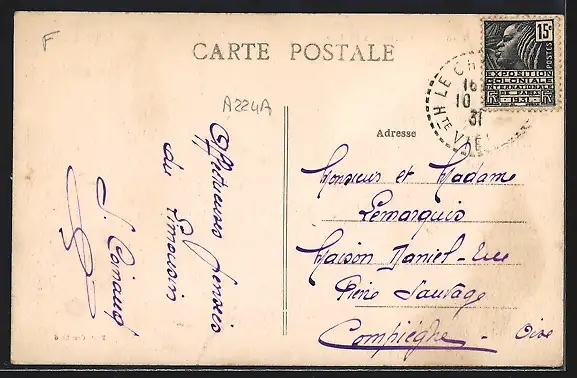 F
CARTE POSTALE
A224A
15c
POSTES
EXPOSITION
COLONIALE
INTERNATIONALE
DE PARIS
1931
H LE CH
16
10
31
TE VIE
Adresse
Affectueuses Pensées
du Limousin
Monsieur et Madame
Lemarquis
Maison Daniel - Rue
Pierre Sauvage
Compiègne - Oise